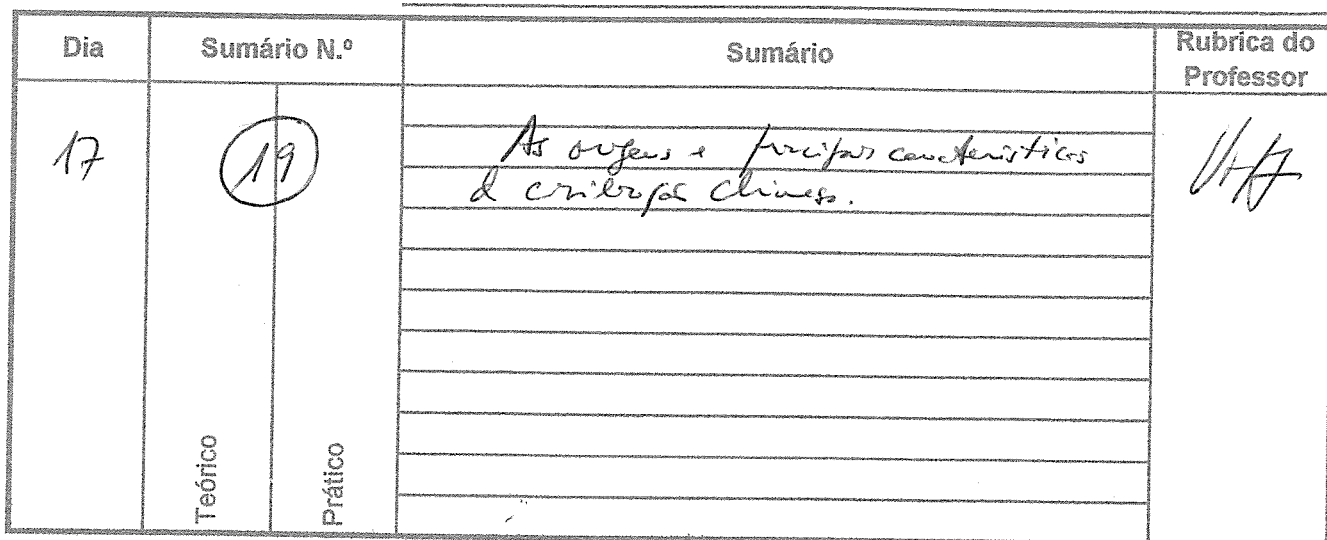 Dia Sumário N.º Sumário Rubrica do
Professor
17 19 As origens e principais características
d civilização chinesa.
Teórico Prático